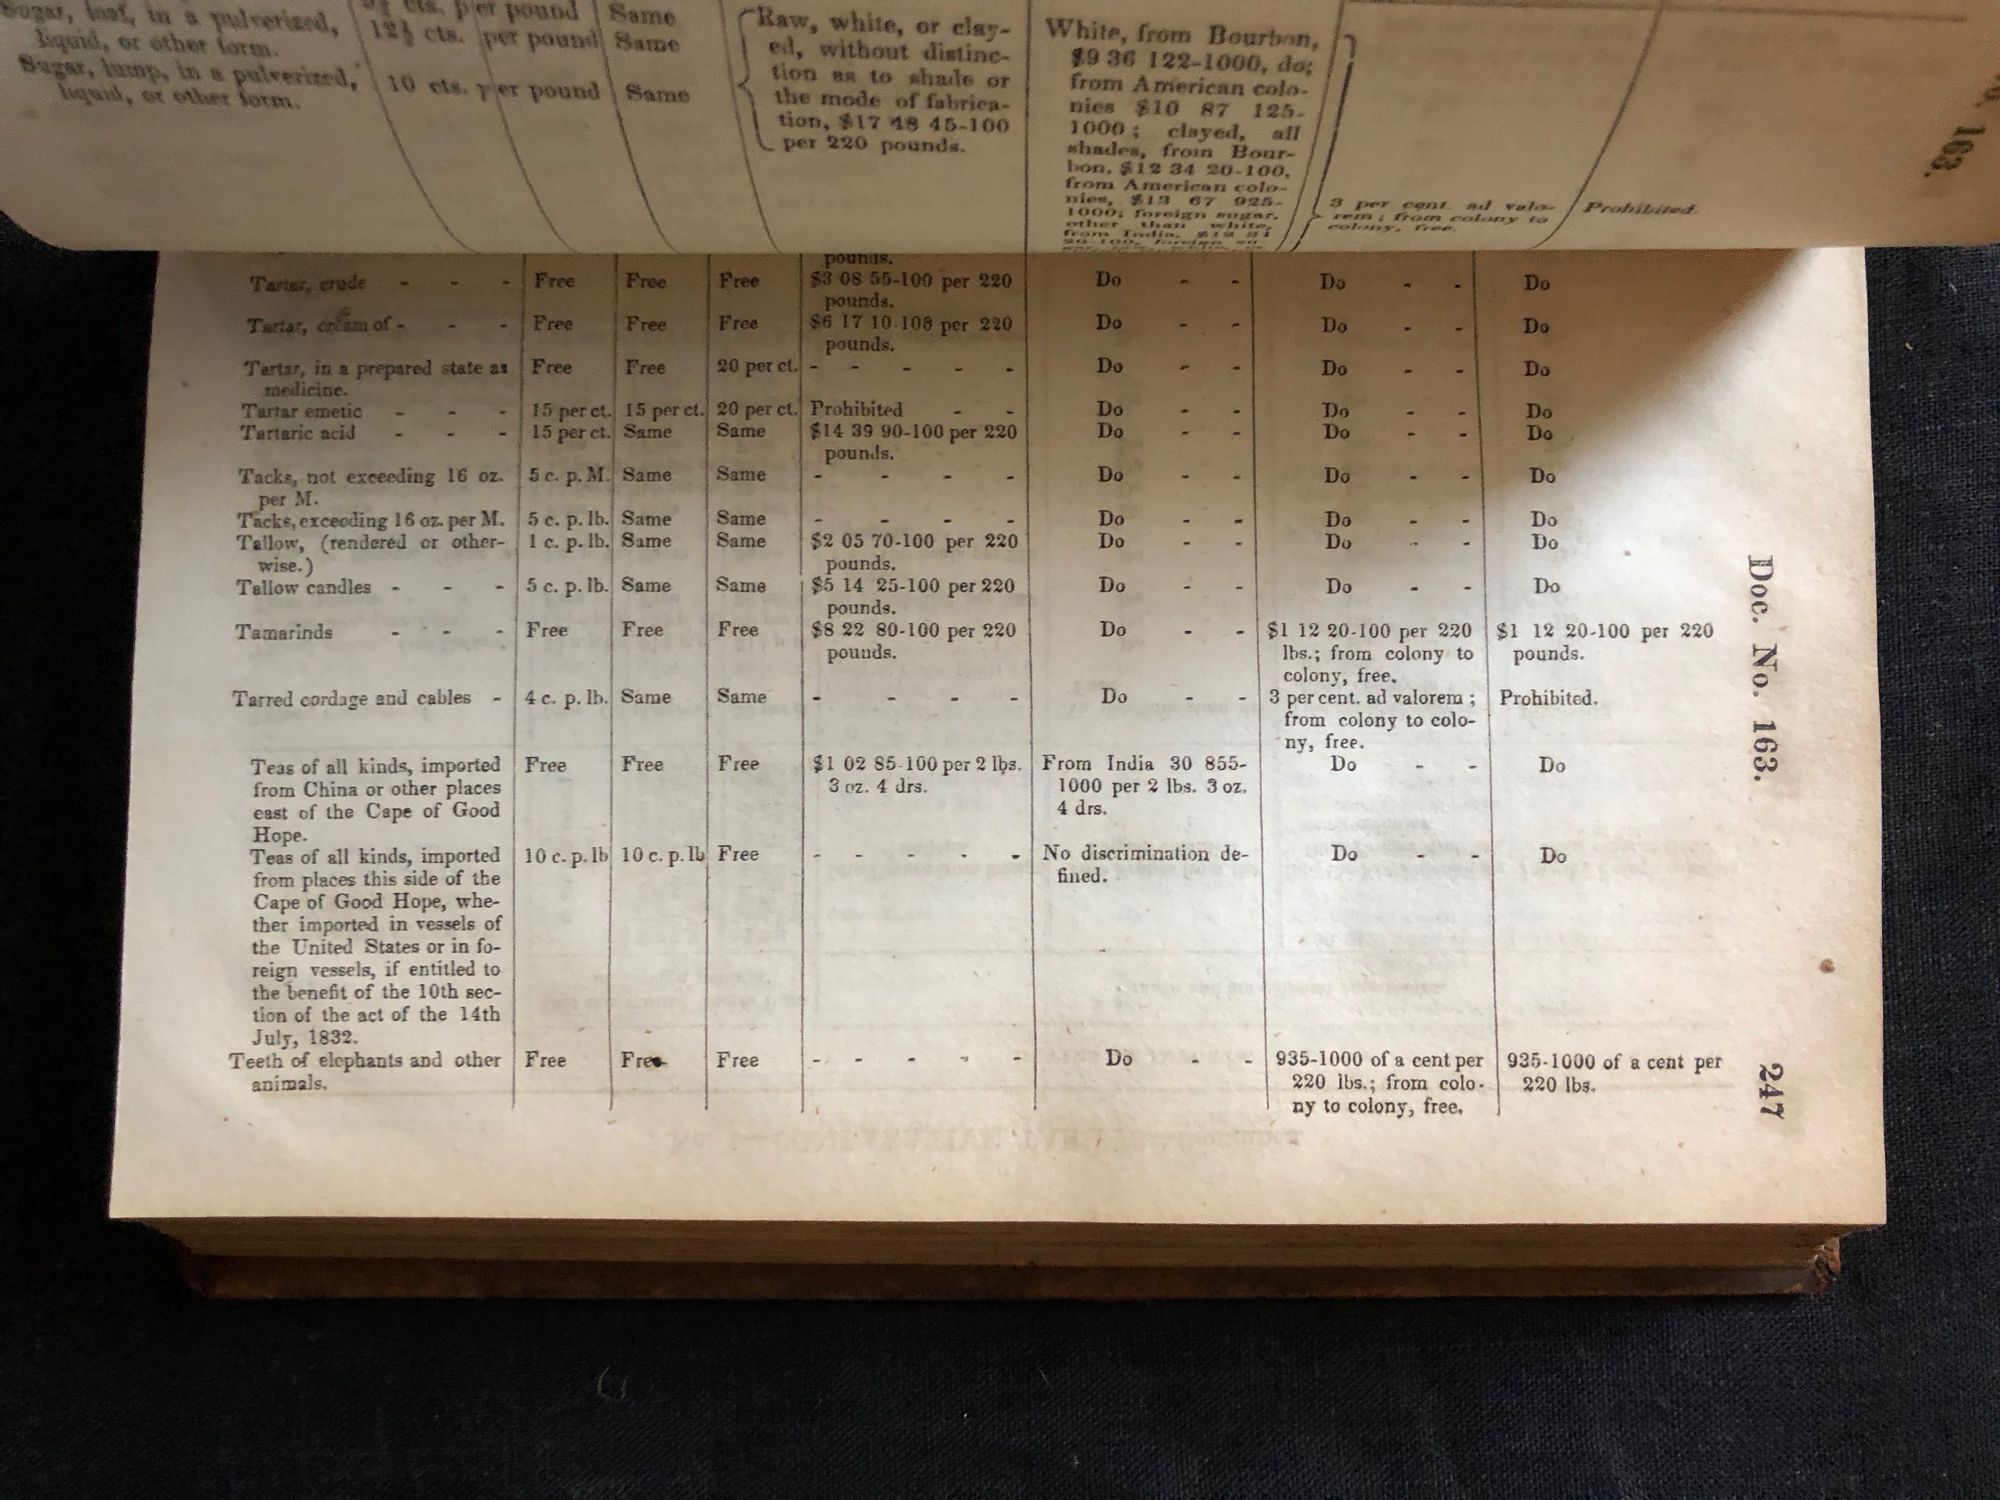 Sugar, loaf, in a pulverized, cts. per pound Same
liquid, or other form. 12½ cts. per pound Same
Sugar, lump, in a pulverized, 10 cts. per pound Same
liquid, or other form.
Raw, white, or clay-
ed, without distinc-
tion as to shade or
the mode of fabrica-
tion, $17 48 45-100
per 220 pounds.
White, from Bourbon,
$9 36 122-1000, do;
from American colo-
nies $10 87 125-
1000; clayed, all
shades, from Bour-
bon, $12 34 20-100,
from American colo-
nies, $13 67 925-
1000; foreign sugar,
other than white,
from India, $12 31
3 per cent. ad valo-
rem; from colony to
colony, free.
Prohibited.
163.
pounds.
Tartar, crude - - - Free Free Free $3 08 55-100 per 220 Do - - Do - - Do
pounds.
Tartar, cream of - - - Free Free Free $6 17 10-100 per 220 Do - - Do - - Do
pounds.
Tartar, in a prepared state as Free Free 20 per ct. - - - - - Do - - Do - - Do
medicine.
Tartar emetic - - - 15 per ct. 15 per ct. 20 per ct. Prohibited - - Do - - Do - - Do
Tartaric acid - - - 15 per ct. Same Same $14 39 90-100 per 220 Do - - Do - - Do
pounds.
Tacks, not exceeding 16 oz. 5 c. p. M. Same Same - - - - Do - - Do - - Do
per M.
Tacks, exceeding 16 oz. per M. 5 c. p. lb. Same Same - - - - Do - - Do - - Do
Tallow, (rendered or other- 1 c. p. lb. Same Same $2 05 70-100 per 220 Do - - Do - - Do
wise.) pounds.
Tallow candles - - 5 c. p. lb. Same Same $5 14 25-100 per 220 Do - - Do - - Do
pounds.
Tamarinds - - - Free Free Free $8 22 80-100 per 220 Do - - $1 12 20-100 per 220 $1 12 20-100 per 220
pounds. lbs.; from colony to pounds.
colony, free.
Tarred cordage and cables - 4 c. p. lb. Same Same - - - - Do - - 3 per cent. ad valorem; Prohibited.
from colony to colo-
ny, free.
Teas of all kinds, imported Free Free Free $1 02 85-100 per 2 lbs. From India 30 855- Do - - Do
from China or other places 3 oz. 4 drs. 1000 per 2 lbs. 3 oz.
east of the Cape of Good 4 drs.
Hope.
Teas of all kinds, imported 10 c. p. lb 10 c. p. lb Free - - - - - No discrimination de- Do - - Do
from places this side of the fined.
Cape of Good Hope, whe-
ther imported in vessels of
the United States or in fo-
reign vessels, if entitled to
the benefit of the 10th sec-
tion of the act of the 14th
July, 1832.
Teeth of elephants and other Free Free Free - - - - - Do - - 935-1000 of a cent per 935-1000 of a cent per
animals. 220 lbs.; from colo- 220 lbs.
ny to colony, free.
Doc. No. 163.
247